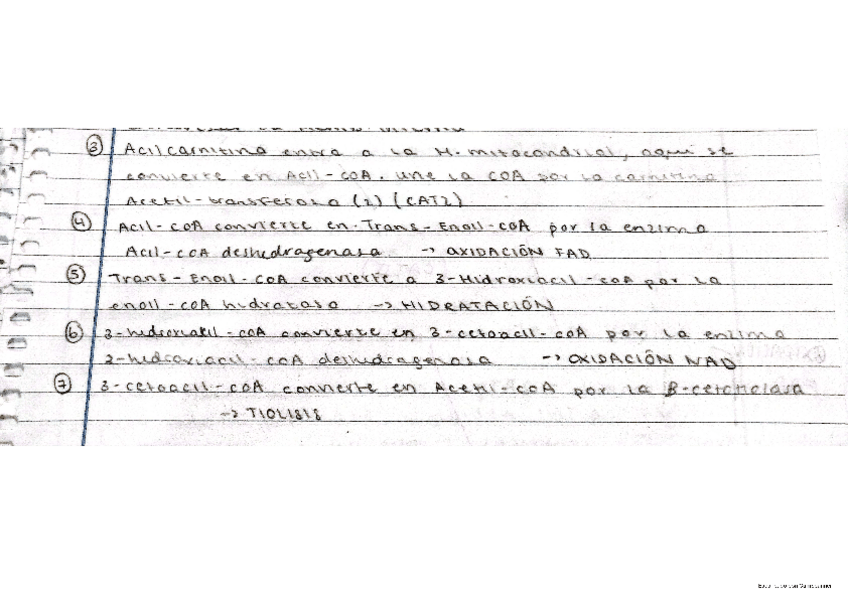 ③ Acilcarnitina entra a la M. mitocondrial, aqui se
convierte en Acil-CoA. une la COA por la carnitina
Acetil-transferasa (2) (CAT2)
④ Acil-COA convierte en Trans-Enoil-COA por la enzima
Acil-COA deshidragenasa -> OXIDACIÓN FAD
⑤ Trans-Enoil-COA convierte a 3-Hidroxiacil-COA por la
enoil-COA hidratasa -> HIDRATACIÓN
⑥ 3-hidroxiacil-COA convierte en 3-cetoacil-COA por la enzima
3-hidroxiacil-COA deshidragenasa -> OXIDACIÓN NAD
⑦ 3-cetoacil-COA convierte en Acetil-COA por la B-cetotiolasa
-> TIOLISIS